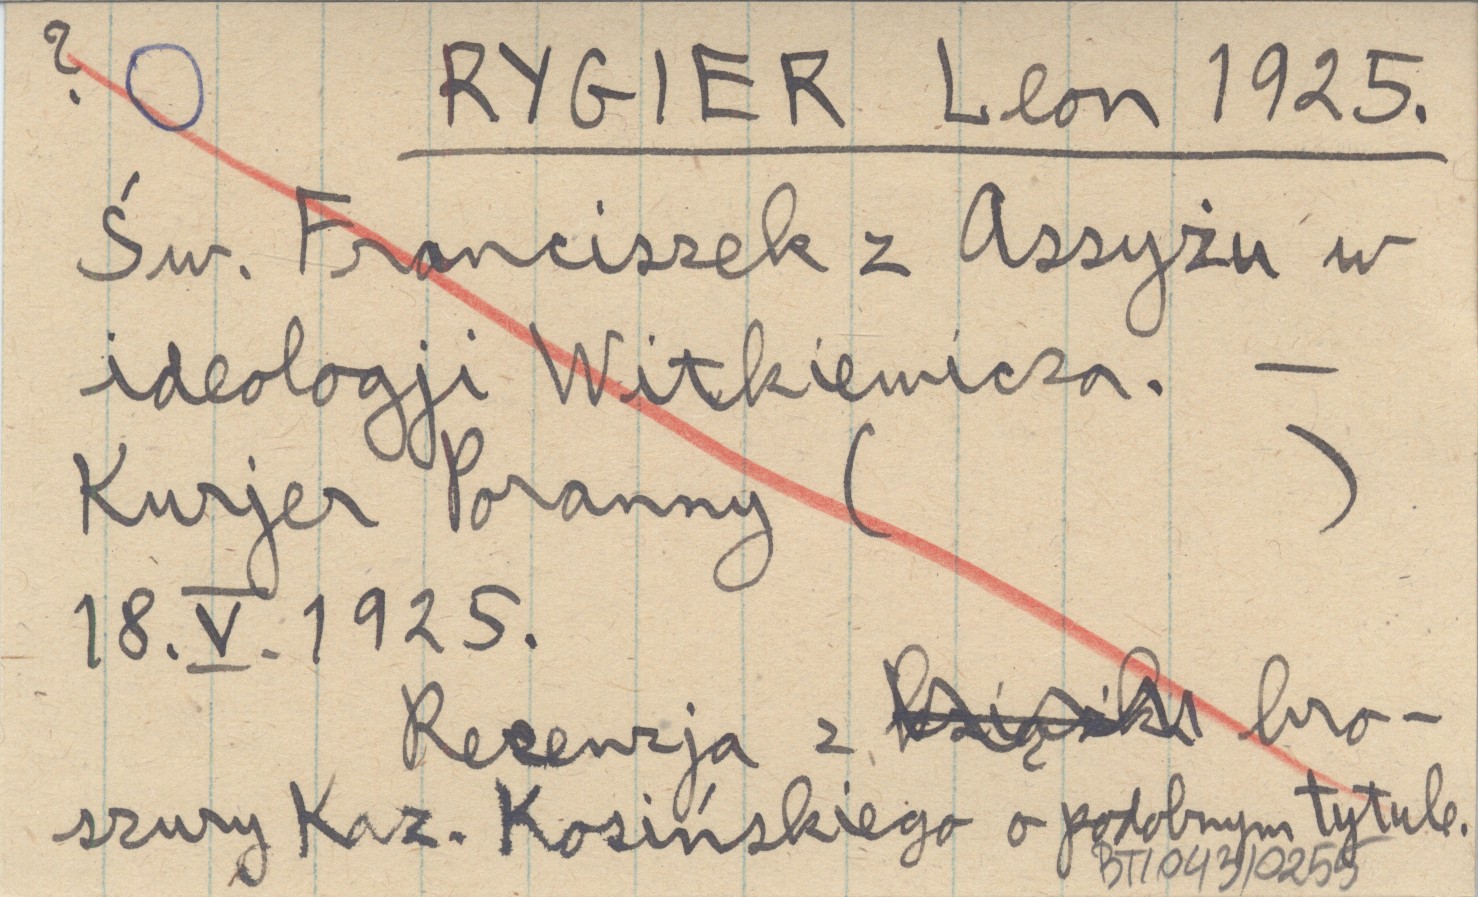 ? RYGIER Leon 1925.
Św. Franciszek z Assyżu w
ideologji Witkiewicza. —
Kurjer Poranny ( )
18.V.1925.
Recenzja z książki bro-
szury Kaz. Kosińskiego o podobnym tytule.
BT/043/0255